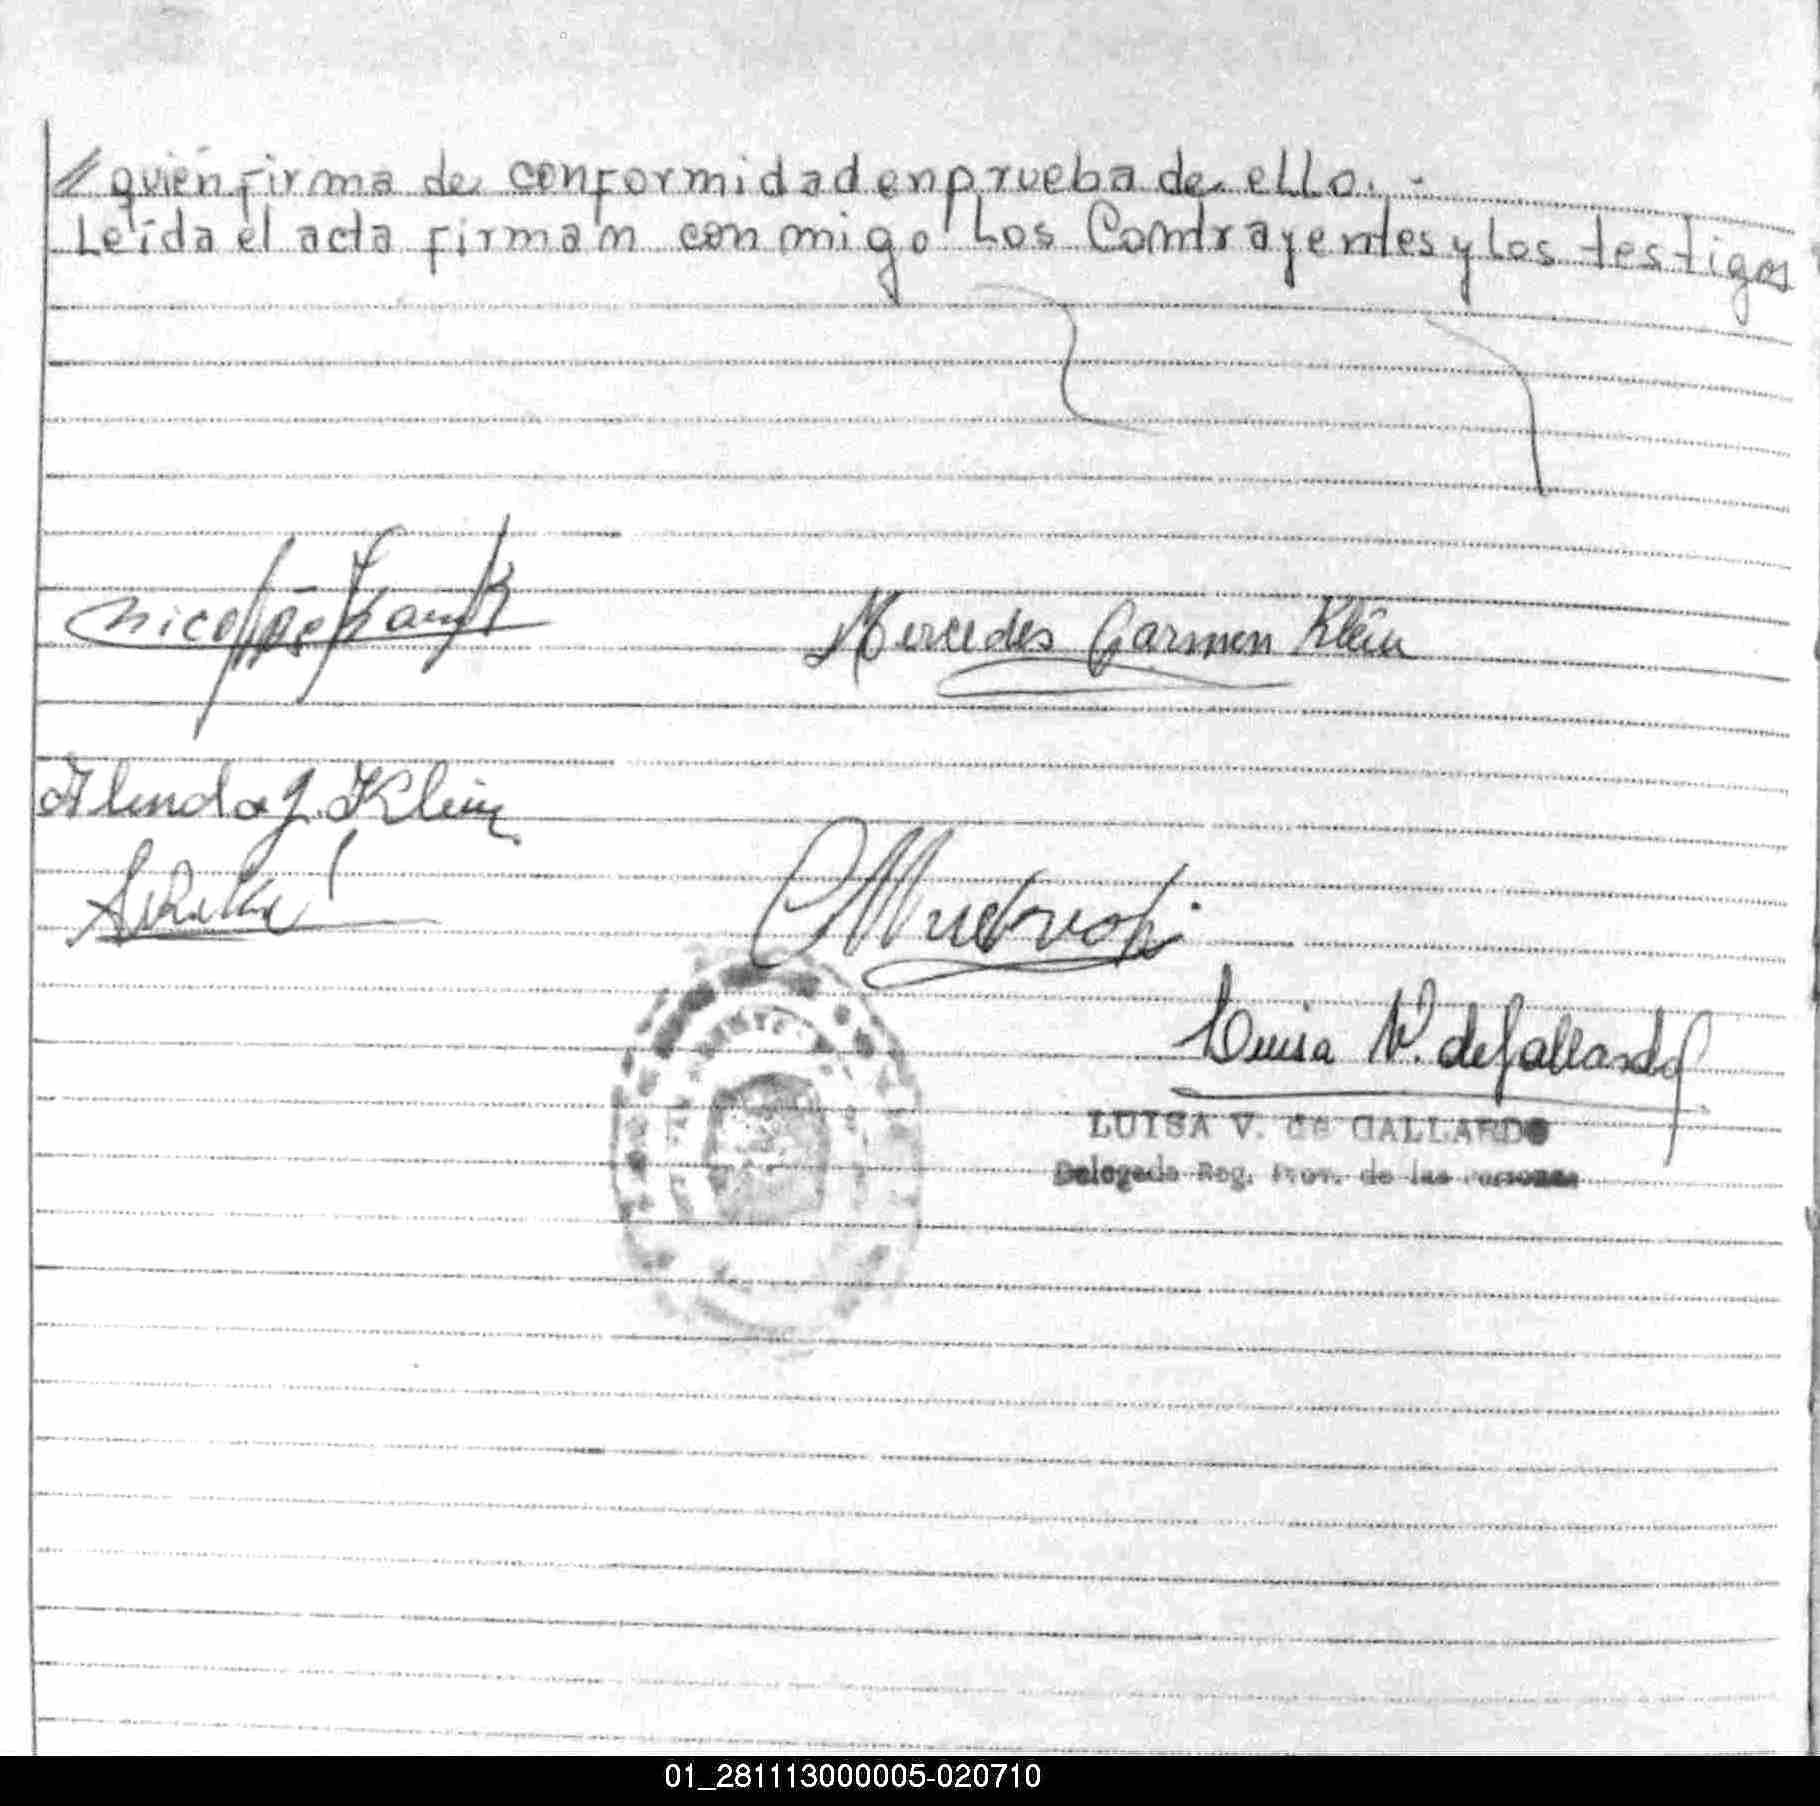 // quién firma de conformidad en prueba de ello. -
Leída el acta firman conmigo los Contrayentes y los testigos
Nicolás
Mercedes Carmen Klein
J. Klein
Luisa V. de Gallardo
LUISA V. de GALLARDO
Delegada Reg. Prov. de las Personas
01_281113000005-020710